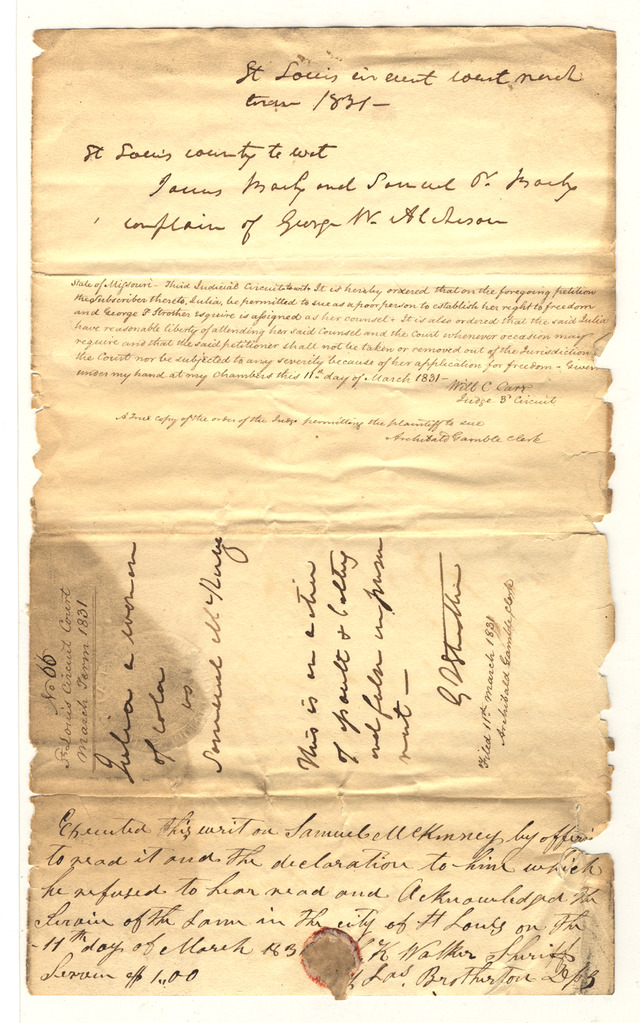 St Louis circuit court march
term 1831 –
St Louis county to wit
James Mackey and Samuel P. Mackey
complain of George W. Atcheson
State of Missouri – Third Judicial Circuit to wit. It is hereby ordered that on the foregoing petition
the Subscriber thereto, Julia, be permitted to sue as a poor person to establish her right to freedom
and George F Strother esquire is assigned as her counsel. It is also ordered that the said Julia
have reasonable liberty of attending her said Counsel and the Court whenever occasion may
require and that the said petitioner shall not be taken or removed out of the Jurisdiction
the Court nor be subjected to any severity because of her application for freedom – Given
under my hand at my Chambers this 11th day of March 1831 –
Will C Carr
Judge 3d Circuit
A True copy of the order of the Judge permitting the plaintiff to sue
Archibald Gamble Clerk
No 66
St Louis Circuit Court
March Term 1831
Julia a woman
of colo
vs
Samuel McKinney
This is an action
of assault & battery
and false imprison
ment –
G F Strother
Filed 11th March 1831
Archibald Gamble Clerk
Executed this writ on Samuel McKinney by offer
to read it and the declaration to him which
he refused to hear read and Acknowledged the
Servis of the Same in the city of St Louis on the
11th day of March 183
K Walker Sheriff
Servis $1.00
Jas. Brotherton D